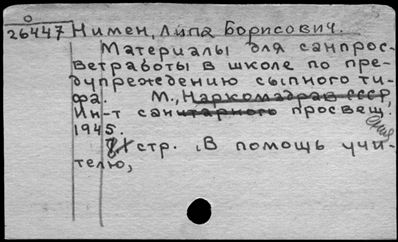 о
26447 Нимен, Липа Борисович.
Материалы для санпрос-
ветработы в школе по пре-
дупреждению сыпного ти-
фа. М., Наркомздрав СССР,
Ин-т санитарного просвещ.
1945.
стр. (В помощь учи-
телю,